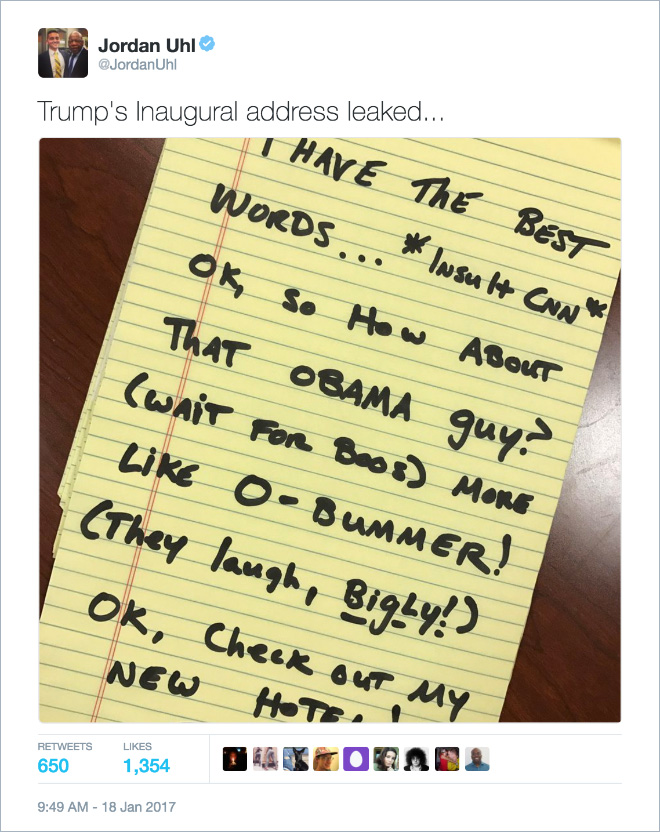 Jordan Uhl
@JordanUhl
Trump's Inaugural address leaked...
I HAVE THE BEST
WORDS... *INSULT CNN*
OK, SO HOW ABOUT
THAT OBAMA guy?
(WAIT FOR BOOS) MORE
LIKE O-BUMMER!
(They laugh, BigLy!)
OK, Check out MY
NEW HOTEL!
RETWEETS LIKES
650 1,354
9:49 AM - 18 Jan 2017